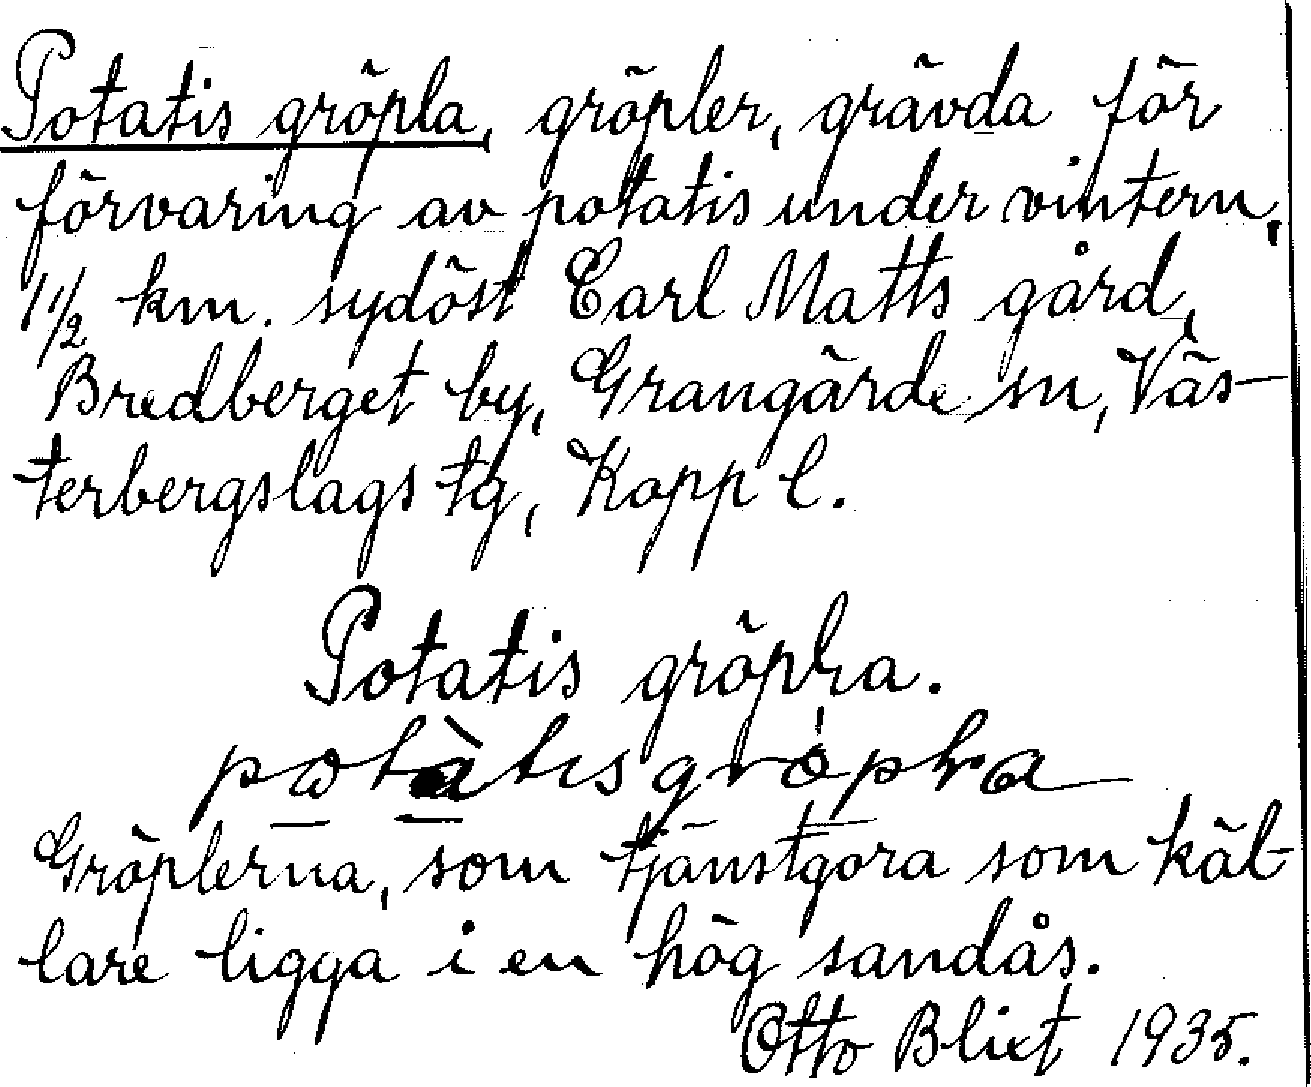 Potatis gröpla, gröpler, grävda för
förvaring av potatis under vintern,
1 1/2 km. sydöst Carl Matts gård,
Bredberget by, Grangärde sn, Väs-
terbergslags tg, Kopp l.
Potatis gröpla.
potàtis grópla
Gröplerna, som tjänstgöra som käl-
lare ligga i en hög sandås.
Otto Blixt 1935.